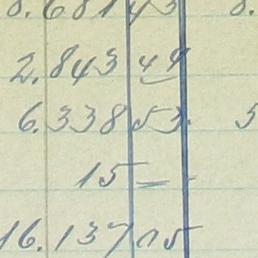 8.681 43 8.
2.843 49
6.338 53 5
15 —
16.137 05